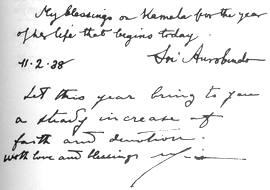 My blessings on Kamala for the year
of her life that begins today.
11.2.38 Sri Aurobindo
Let this year bring to you
a steady increase of
faith and devotion.
with love and blessings